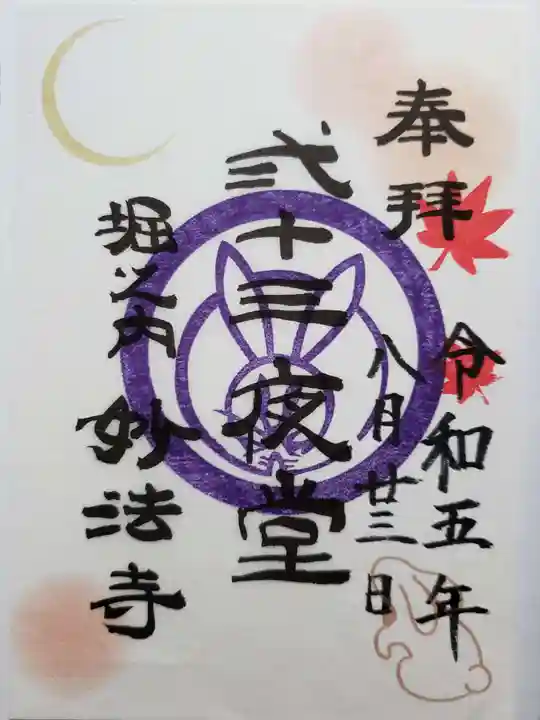 奉拝
令和五年
八月廿三日
弐十三夜堂
堀之内
妙法寺